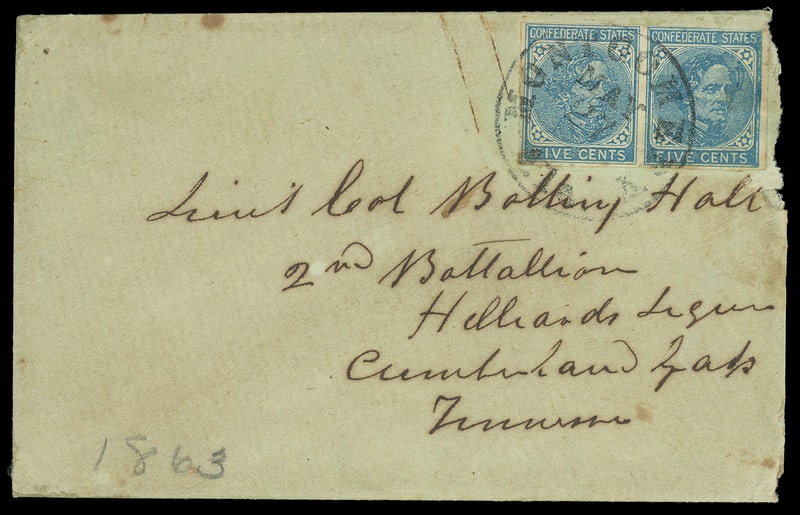 CONFEDERATE STATES CONFEDERATE STATES
MONTGOMERY
MAY
FIVE CENTS FIVE CENTS
Lieut Col Bolling Hall
2nd Battallion
Hilliards Legion
Cumberland Gap
Tennessee
1863